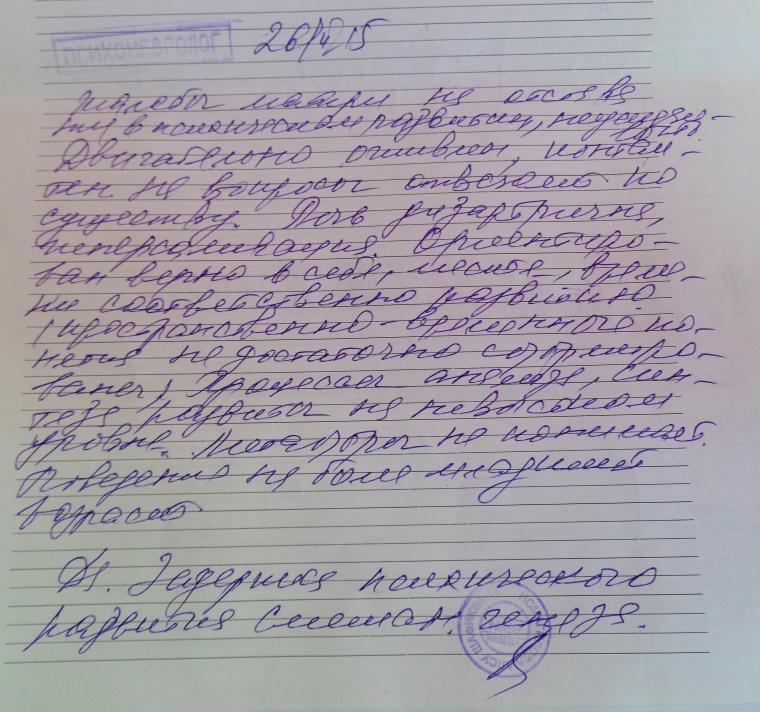 ПСИХОНЕВРОЛОГ 26/4/15
Жалобы матери на отстава
ние в психическом развитии, неусидчи-
вость.
Двигательно оживлен, контак-
тен на вопросы отвечает по
существу. Речь дизартрична,
гиперсаливация. Ориентиро-
ван верно в себе, месте, време-
ни соответственно развитию
(пространственно-временные по-
нятия не достаточно сформиро-
ваны). Процессы анализа, син-
теза развиты на невысоком
уровне. Метафоры не понимает.
Поведение на более младший
возраст
Ds. Задержка психического
развития смешан. генеза.